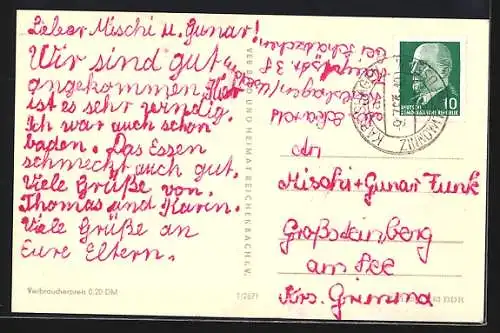 Lieber Mischi u. Gunar!
Wir sind gut
angekommen. Hier
ist es sehr windig.
Ich war auch schon
baden. Das Essen
schmeckt auch gut.
Viele Grüße von.
Thomas und Karin.
Viele Grüße an
Eure Eltern.
Verbraucherpreis 0,20 DM
VERLAG UND HEIMAT REICHENBACH I. V.
1/2671
DEUTSCHE
DEMOKRATISCHE REPUBLIK
10
An
Mischi+Gunar Funk
Großsteinberg
am See
Krs. Grimma
DDR